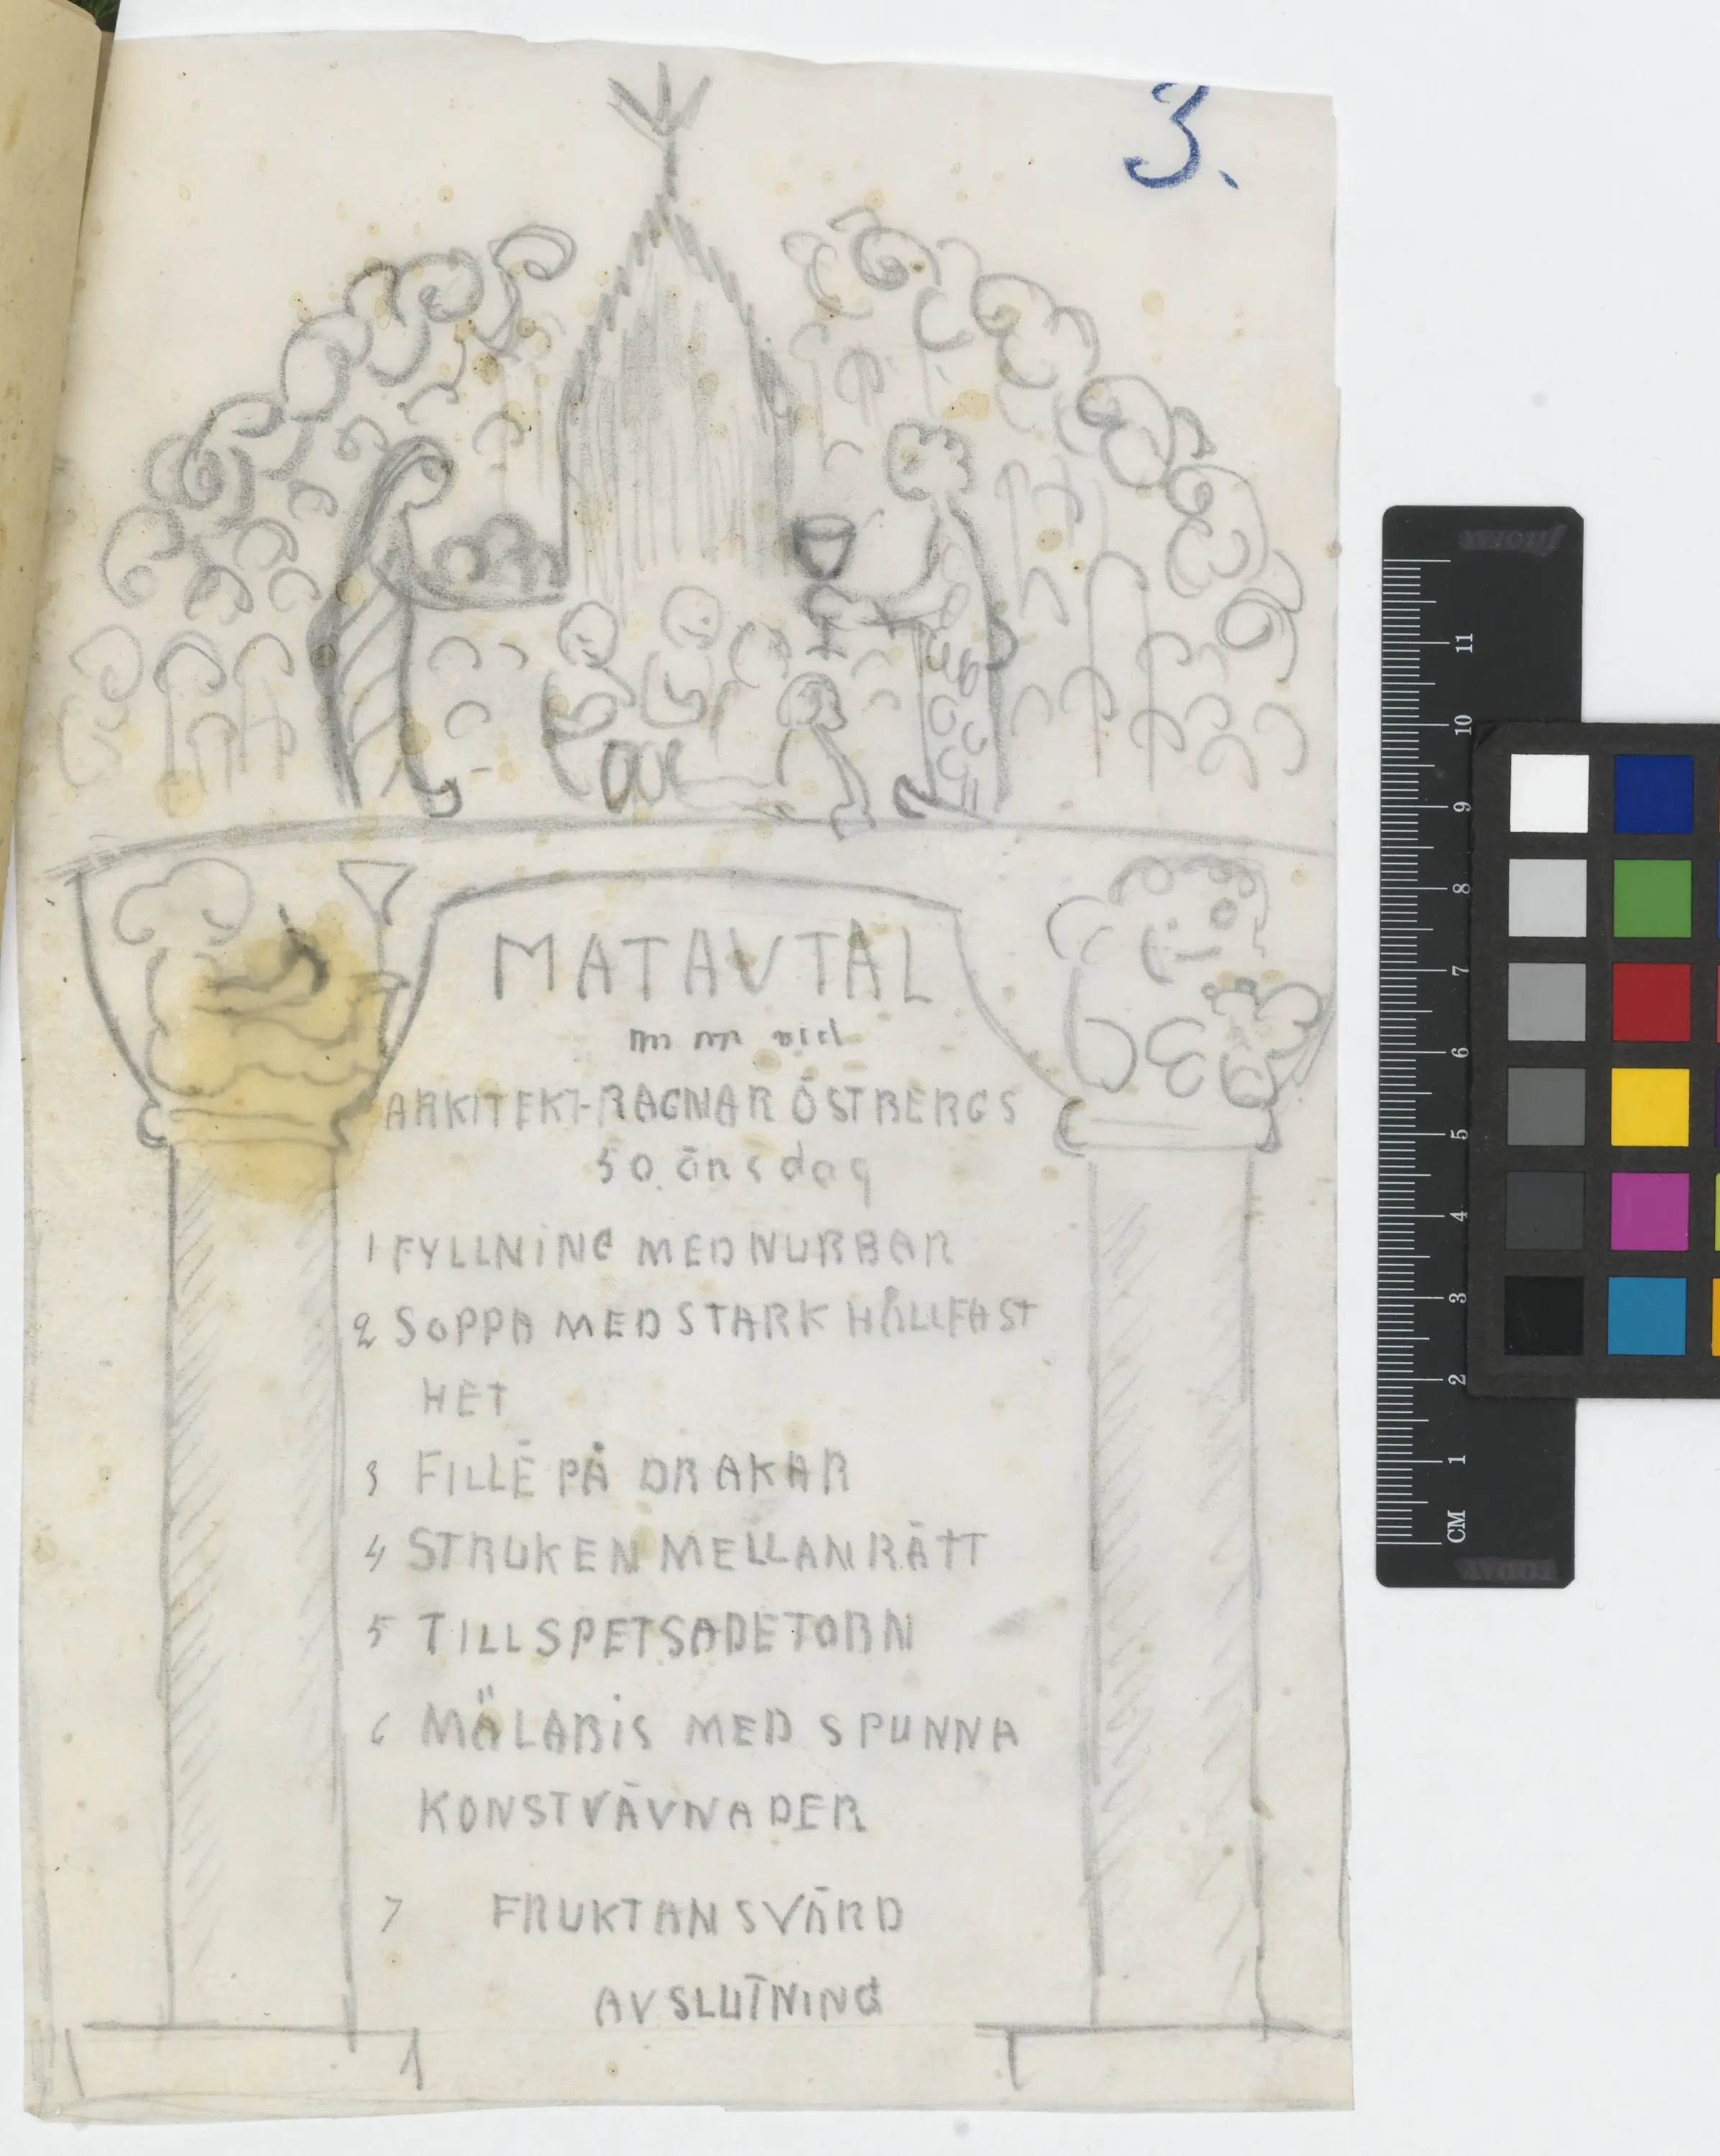 3.
MATAVTAL
m m vid
ARKITEKT RAGNAR ÖSTBERGS
50 årsdag
1 FYLLNING MED NURBAR
2 SOPPA MED STARK HÅLLFAST
HET
3 FILLÉ PÅ DRAKAR
4 STRUKEN MELLANRÄTT
5 TILLSPETSADE TORN
6 MÄLARIS MED SPUNNA
KONSTVÄVNADER
7 FRUKTANSVÄRD
AVSLUTNING
11
10
9
8
7
6
5
4
3
2
1
CM